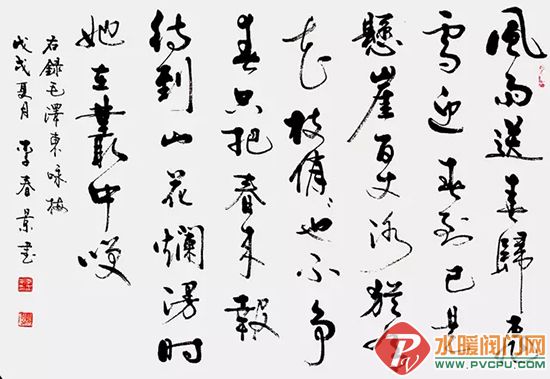 風雨送春歸飛
雪迎春到已是
懸崖百丈冰猶有
花枝俏也不争
春只把春来報
待到山花爛漫时
她在叢中咲
右錄毛澤東咏梅
戊戌夏月 李春景書
水暖阀门网
WWW.PVCPU.COM